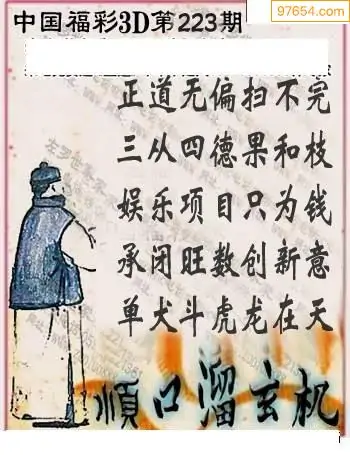 97654.com
中国福彩3D第223期
正道无偏扫不完
三从四德果和枝
娱乐项目只为钱
承闭旺数创新意
单犬斗虎龙在天
顺口溜玄机